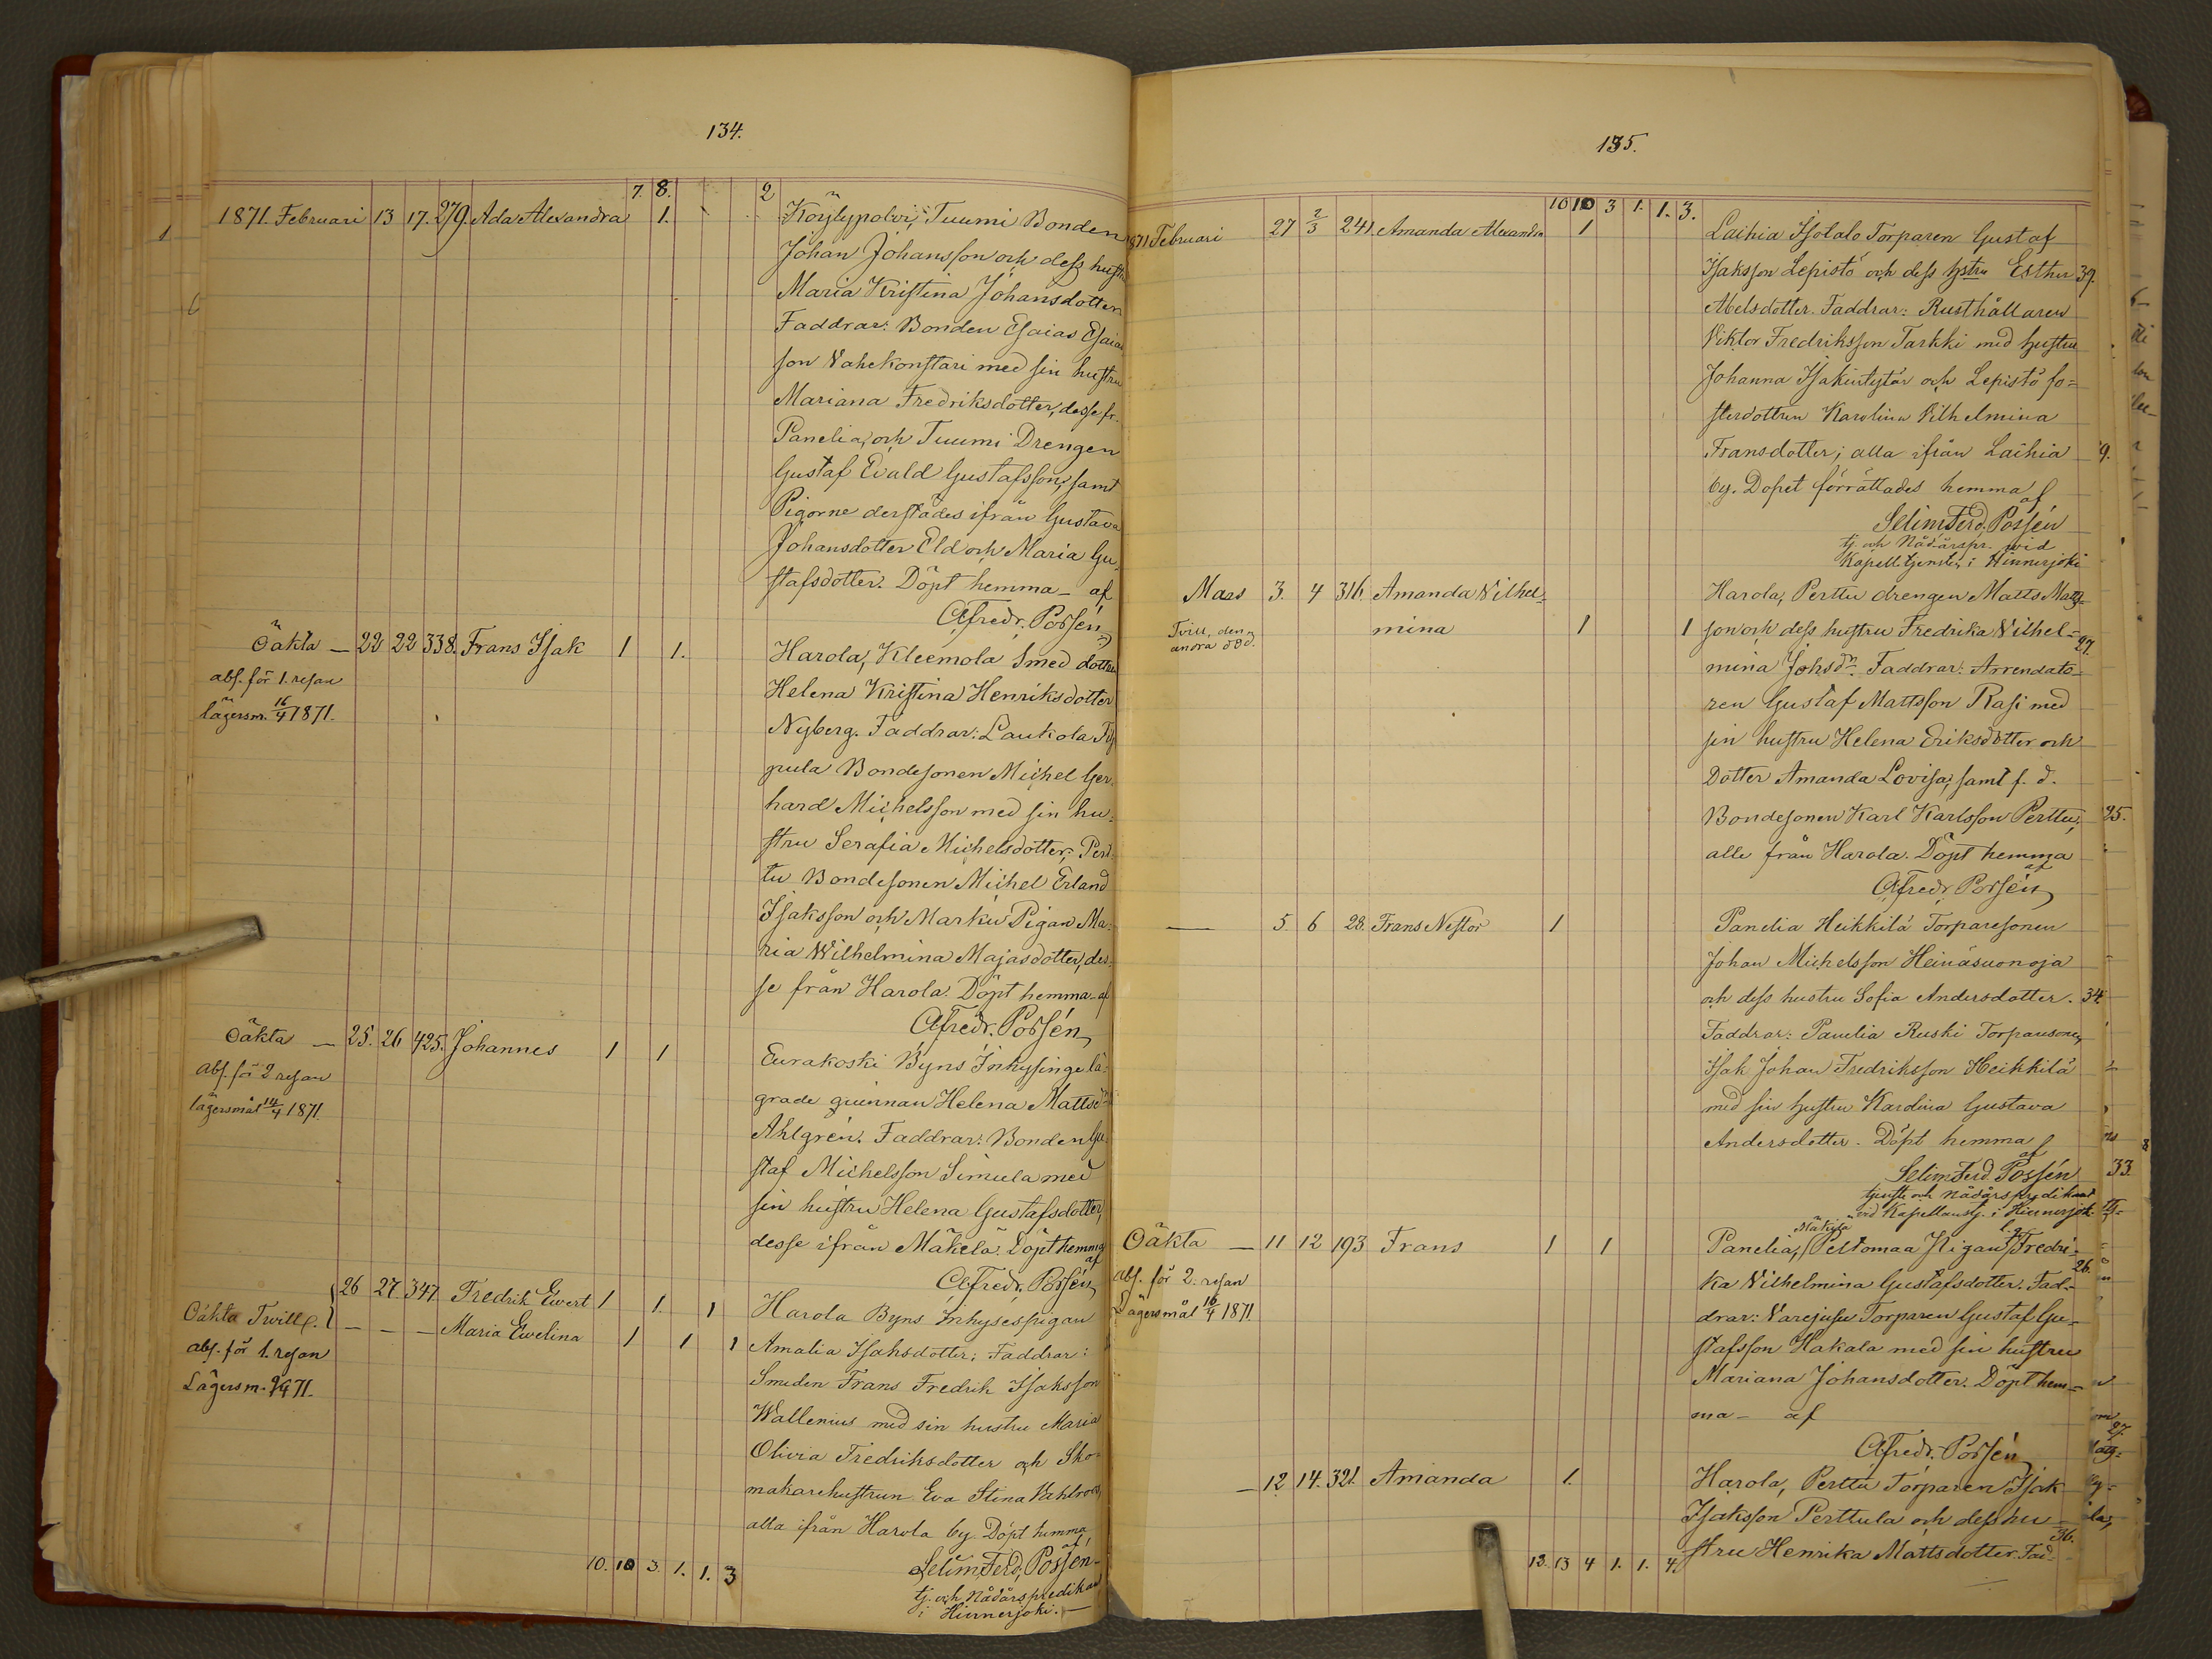 134.
7. 8. 2
1871. Februari 13 17. 279. Ada Alexandra 1. Köylypolvi, Tuumi Bonden
Johan Johansson och dess hustru
Maria Kristina Johansdotter
Faddrar: Bonden Esaias Esaias
son Vahekonstari med sin hustru
Mariana Fredriksdotter, desse fr.
Panelia, och Tuumi Drengen
Gustaf Evald Gustafsson, samt
Pigorne derstädes ifrån Gustava
Johansdotter Eld och Maria Gu-
stafsdotter. Döpt hemma - af
Afredr. Possén
Oäkta — 22 22 338. Frans Isak 1 1. Harola, Kleemola Smed dottren
abs. för 1. resan Helena Kristina Henriksdotter
lägersm. 16/4 1871. Nyberg. Faddrar: Laukola
pula Bondesonen Michel Ger-
hard Michelsson med sin hu-
stru Serafia Michelsdotter, Pert-
tu Bondesonen Michel Erland
Isaksson och Marku Pigan Ma-
ria Wilhelmina Majasdotter, des-
se från Harola. Döpt hemma - af
Afredr. Possén
Oäkta — 25. 26 425. Johannes 1 1 Eurakoski Byns Inhysinge lä-
abs. för 2 resan grade qvinnan Helena Mattsdr
lägersmål 14/4 1871 Ahlgrén. Faddrar: Bonden Gu-
staf Michelsson Simula med
sin hustru Helena Gustafsdotter,
desse ifrån Mäkelä. Döpt hemma
af
Afredr. Possén
26 27. 347. Fredrik Ewert 1 1. 1 Harola Byns Inhysespigan
Oäkta Twill. — — — Maria Ewelina 1 1 1 Amalia Isaksdotter; Faddrar:
abs. för 1. resan Smeden Frans Fredrik Isaksson
Lägersm. 9/4 71. Wallenius med sin hustru Maria
Olivia Fredriksdotter och Sko-
makarehustrun Eva Stina
alla ifrån Harola by Döpt hemma
af
10. 10 3. 1. 1. 3 Selim Ferd. Possén
tj. och Nådårspredikant
i Hinnerjoki. —
135.
10 10 3 1. 1. 3.
1871 Februari 27 2/3 241. Amanda Alexandra 1 Laihia Isotalo Torparen Gustaf
Isaksson Lepistö och dess hstru Esther 39.
Abelsdotter. Faddrar: Rusthållaren
Viktor Fredriksson Tarkki med hustru
Johanna Isakintytär och Lepistö fo-
sterdottren Karolina Vilhelmina
Fransdotter; alla ifrån Laihia
by. Dopet förrättades hemma
af
Selim Ferd. Possén
tj. och Nådårspr. vid
Kapell. tjensten i Hinnerjoki
Mars 3. 4 316. Amanda Vilhel- Harola, Perttu drengen Matts Matts
Tvill, den andra död. mina 1 1 son och dess hustru Fredrika Vilhel- 27.
mina Johsdr. Faddrar: Arrendato-
ren Gustaf Mattsson Rasi med
sin hustru Helena Eriksdotter och
Dotter Amanda Lovisa, samt f. d.
Bondesonen Karl Karlsson Perttu,
alle från Harola. Döpt hemma
af
Afredr Possén
— 5. 6 28. Frans Nestor 1 Panelia Heikkilä Torparesonen
Johan Michelsson Heinäsuonoja
och dess hustru Sofia Andersdotter. 34.
Faddrar: Panelia Ruski Torparsonen
Isak Johan Fredriksson Heikkilä
med sin hustru Karolina Gustava
Andersdotter. Döpt hemma
af
Selim Ferd Possén
tjenst. och nådårspredikant
vid Kapellanstj. i Hinnerjoki.
Mäkilä
Oäkta — 11 12 193 Frans 1 1 Panelia, Peltomaa Pigan Fredri-
abs. för 2. resan ka Vilhelmina Gustafsdotter. Fad- 26.
Lägersmål 16/4 1871. drar: Varejusu Torparen Gustaf Gu-
stafsson Hakala med sin hustru
Mariana Johansdotter. Döpt hem-
ma - af
Afredr. Possén
— 12. 14. 321. Amanda 1. Harola, Perttu Torparen Isak
Isaksson Perttula och dess hu-
36.
12. 13 4 1. 1. 4. stru Henrika Mattsdotter. Fad-